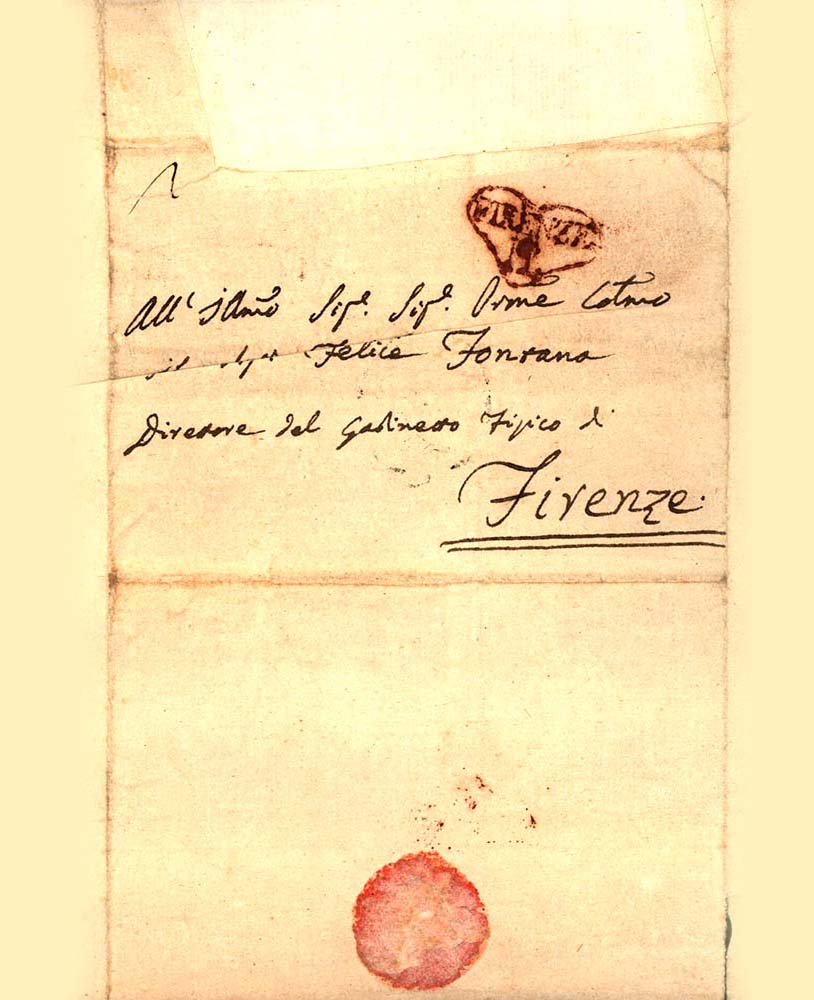 FIRENZE
All' Illmo Sigr. Sigr. Prone Colmo
Felice Fontana
Direttore del Gabinetto Fisico di
Firenze.